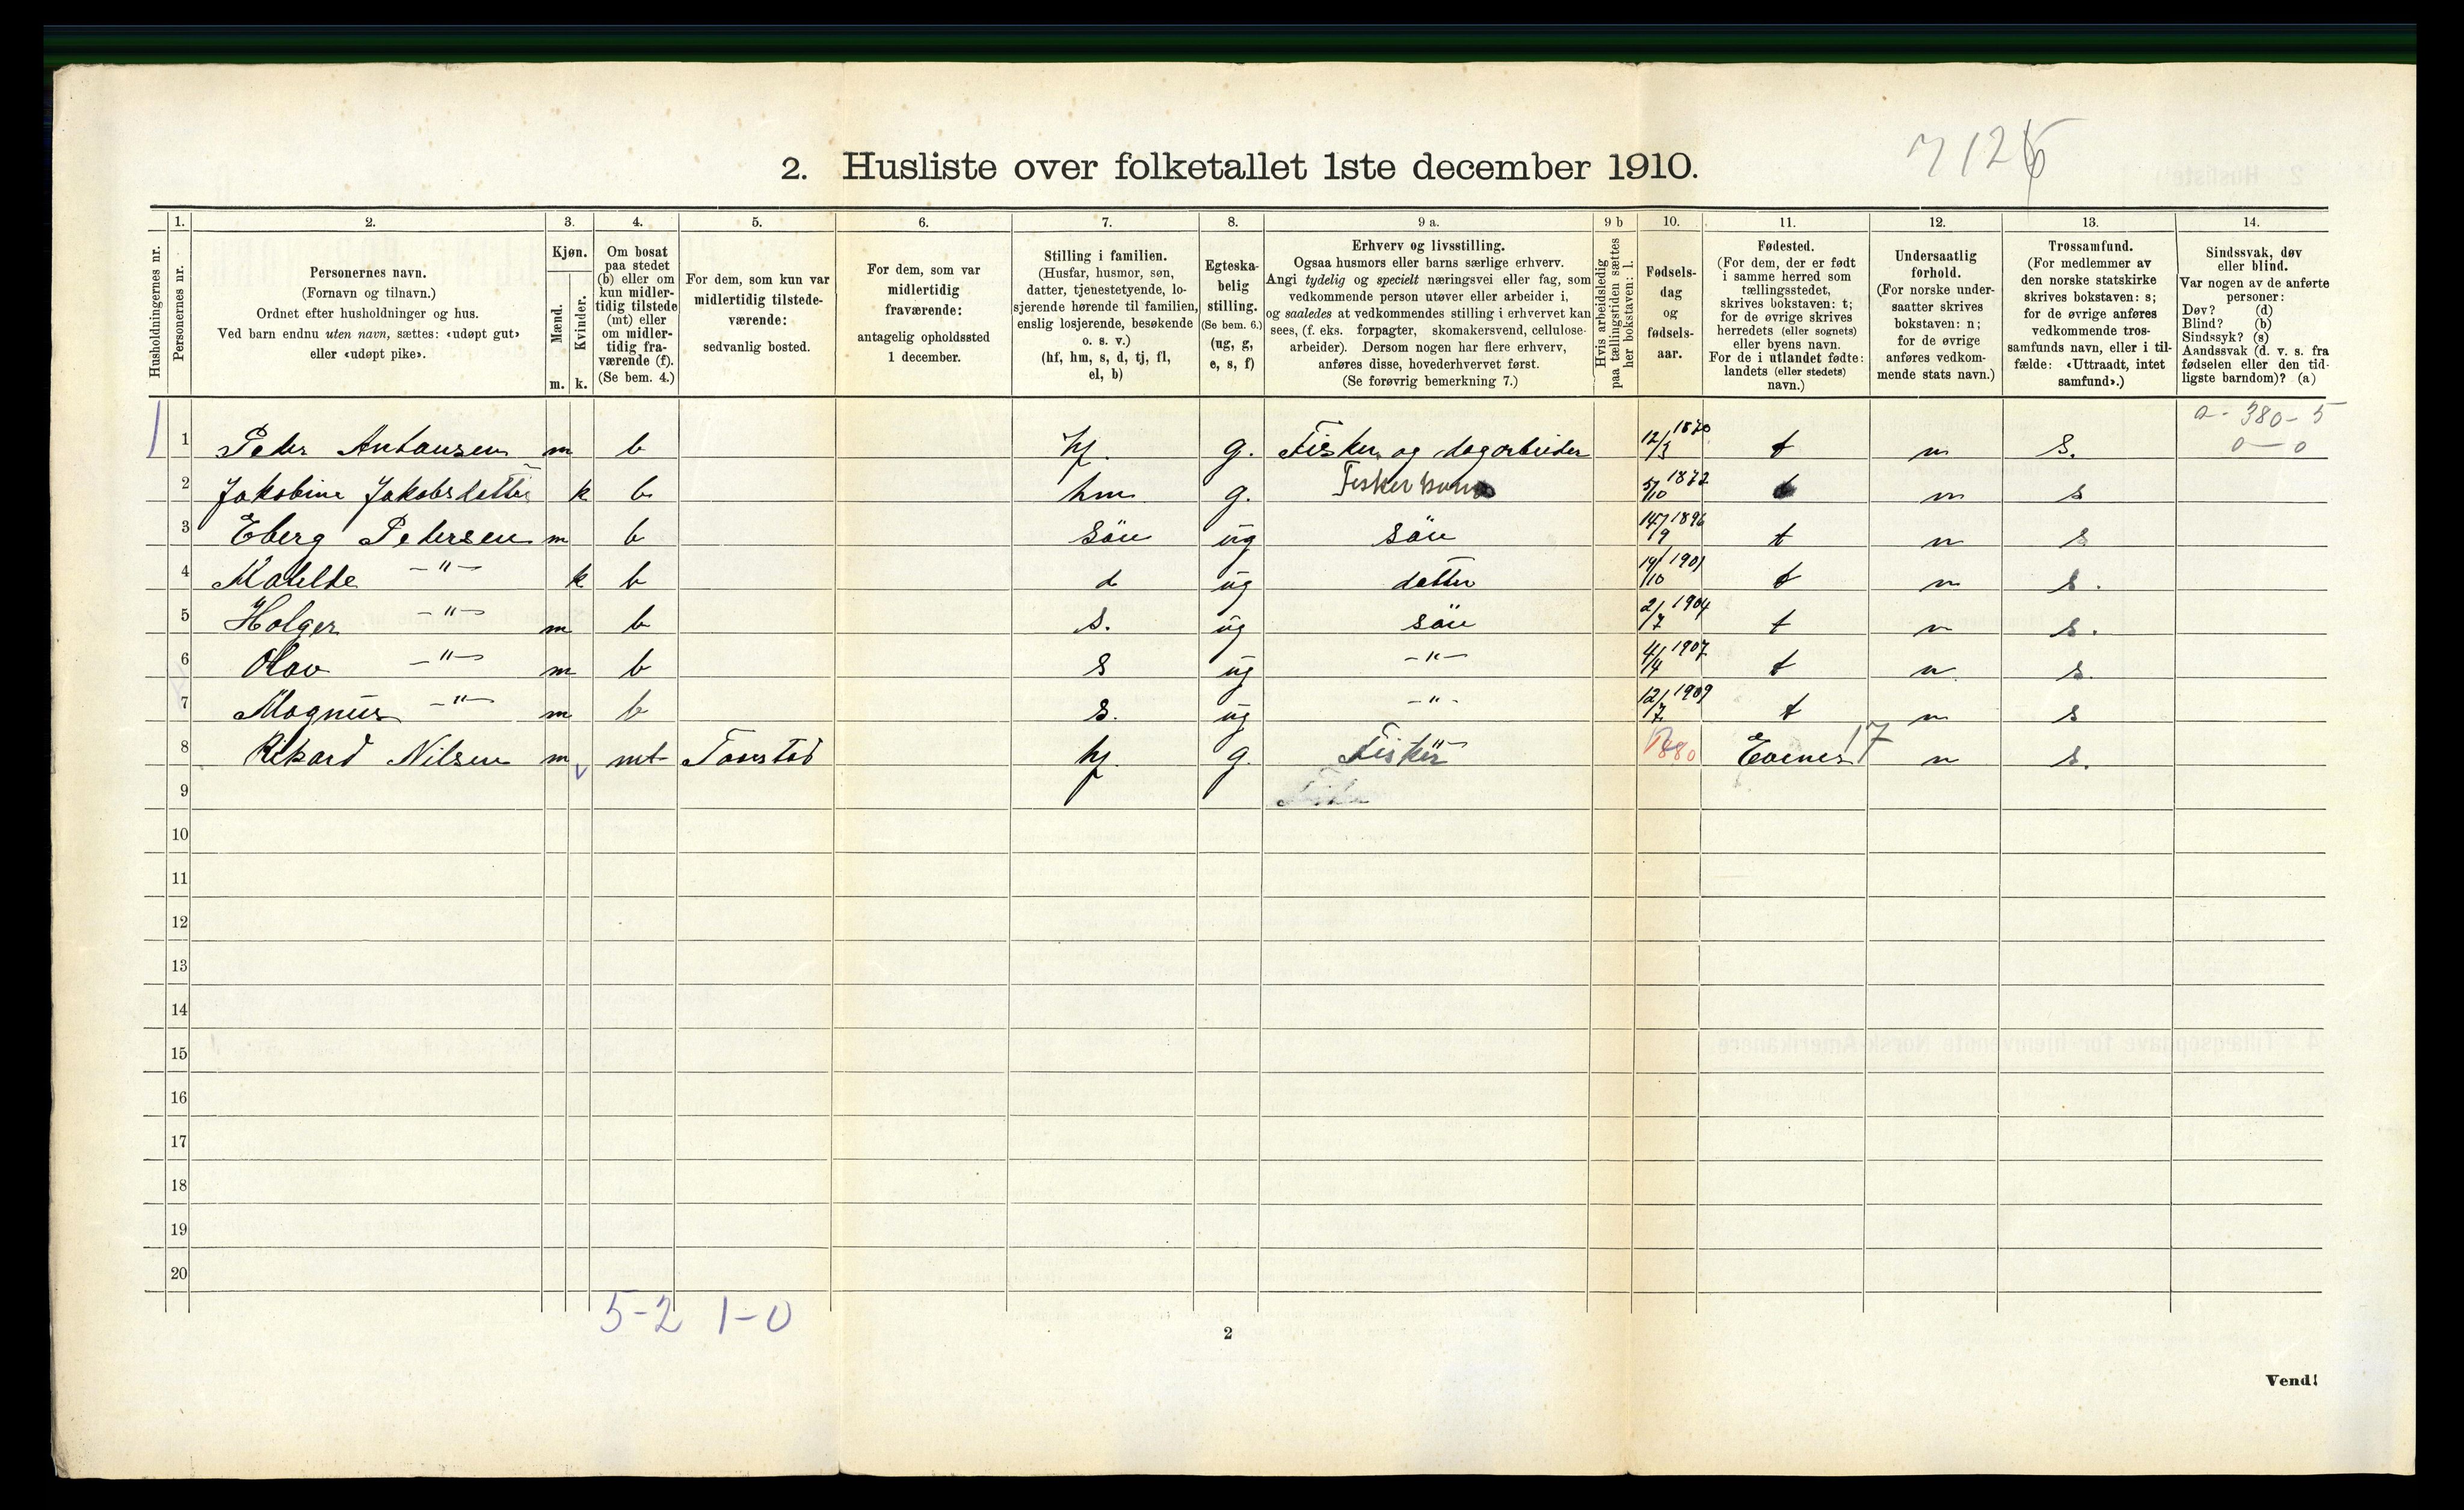 2. Husliste over folketallet 1ste december 1910.
1. 2. 3. 4. 5. 6. 7. 8. 9 a. 9 b 10. 11. 12. 13. 14.
Husholdningernes nr.
Personernes nr.
Personernes navn.
(Fornavn og tilnavn.)
Ordnet efter husholdninger og hus.
Ved barn endnu uten navn, sættes: «udøpt gut»
eller «udøpt pike».
Kjøn.
Mænd.
Kvinder.
m. k.
Om bosat
paa stedet
(b) eller om
kun midler-
tidig tilstede
(mt) eller
om midler-
tidig fra-
værende (f).
(Se bem. 4.)
For dem, som kun var
midlertidig tilstede-
værende:
sedvanlig bosted.
For dem, som var
midlertidig
fraværende:
antagelig opholdssted
1 december.
Stilling i familien.
(Husfar, husmor, søn,
datter, tjenestetyende, lo-
sjerende hørende til familien,
enslig losjerende, besøkende
o. s. v.)
(hf, hm, s, d, tj, fl,
el, b)
Egteska-
belig
stilling.
(Se bem. 6.)
(ug, g,
e, s, f)
Erhverv og livsstilling.
Ogsaa husmors eller barns særlige erhverv.
Angi tydelig og specielt næringsvei eller fag, som
vedkommende person utøver eller arbeider i,
og saaledes at vedkommendes stilling i erhvervet kan
sees, (f. eks. forpagter, skomakersvend, cellulose-
arbeider). Dersom nogen har flere erhverv,
anføres disse, hovederhvervet først.
(Se forøvrig bemerkning 7.)
Hvis arbeidsledig
paa tællingstiden sættes
her bokstaven: l.
Fødsels-
dag
og
fødsels-
aar.
Fødested.
(For dem, der er født
i samme herred som
tællingsstedet,
skrives bokstaven: t;
for de øvrige skrives
herredets (eller sognets)
eller byens navn.
For de i utlandet fødte:
landets (eller stedets)
navn.)
Undersaatlig
forhold.
(For norske under-
saatter skrives
bokstaven: n;
for de øvrige
anføres vedkom-
mende stats navn.)
Trossamfund.
(For medlemmer av
den norske statskirke
skrives bokstaven: s;
for de øvrige anføres
vedkommende tros-
samfunds navn, eller i til-
fælde: «Uttraadt, intet
samfund».)
Sindssvak, døv
eller blind.
Var nogen av de anførte
personer:
Døv? (d)
Blind? (b)
Sindssyk? (s)
Aandssvak (d. v. s. fra
fødselen eller den tid-
ligste barndom)? (a)
0 - 380 - 5
1 1 Peder Antonsen m b hf. g. Fisker og dagarbeider 12/3 1870 t n s. 0 — 0
2 Jakobine Jakobsdatter k b hm g. Fisker kone 5/10 1872 t n s
3 Eberg Pedersen m b søn ug søn 14/9 1896 t n s
4 Matilde —"— k b d ug datter 14/10 1901 t n s.
5 Holger —"— m b s. ug søn 2/7 1904 t n s.
6 Olav —"— m b s ug —"— 4/4 1907 t n s.
7 Magnus —"— m b s. ug —"— 12/7 1909 t n s
8 Rikard Nilsen m mt Taarstad hf. g. Fisker 1880 Evenes 17 n s.
9
10
11
12
13
14
15
16
17
18
19
20
5-2 1-0
2
Vend!